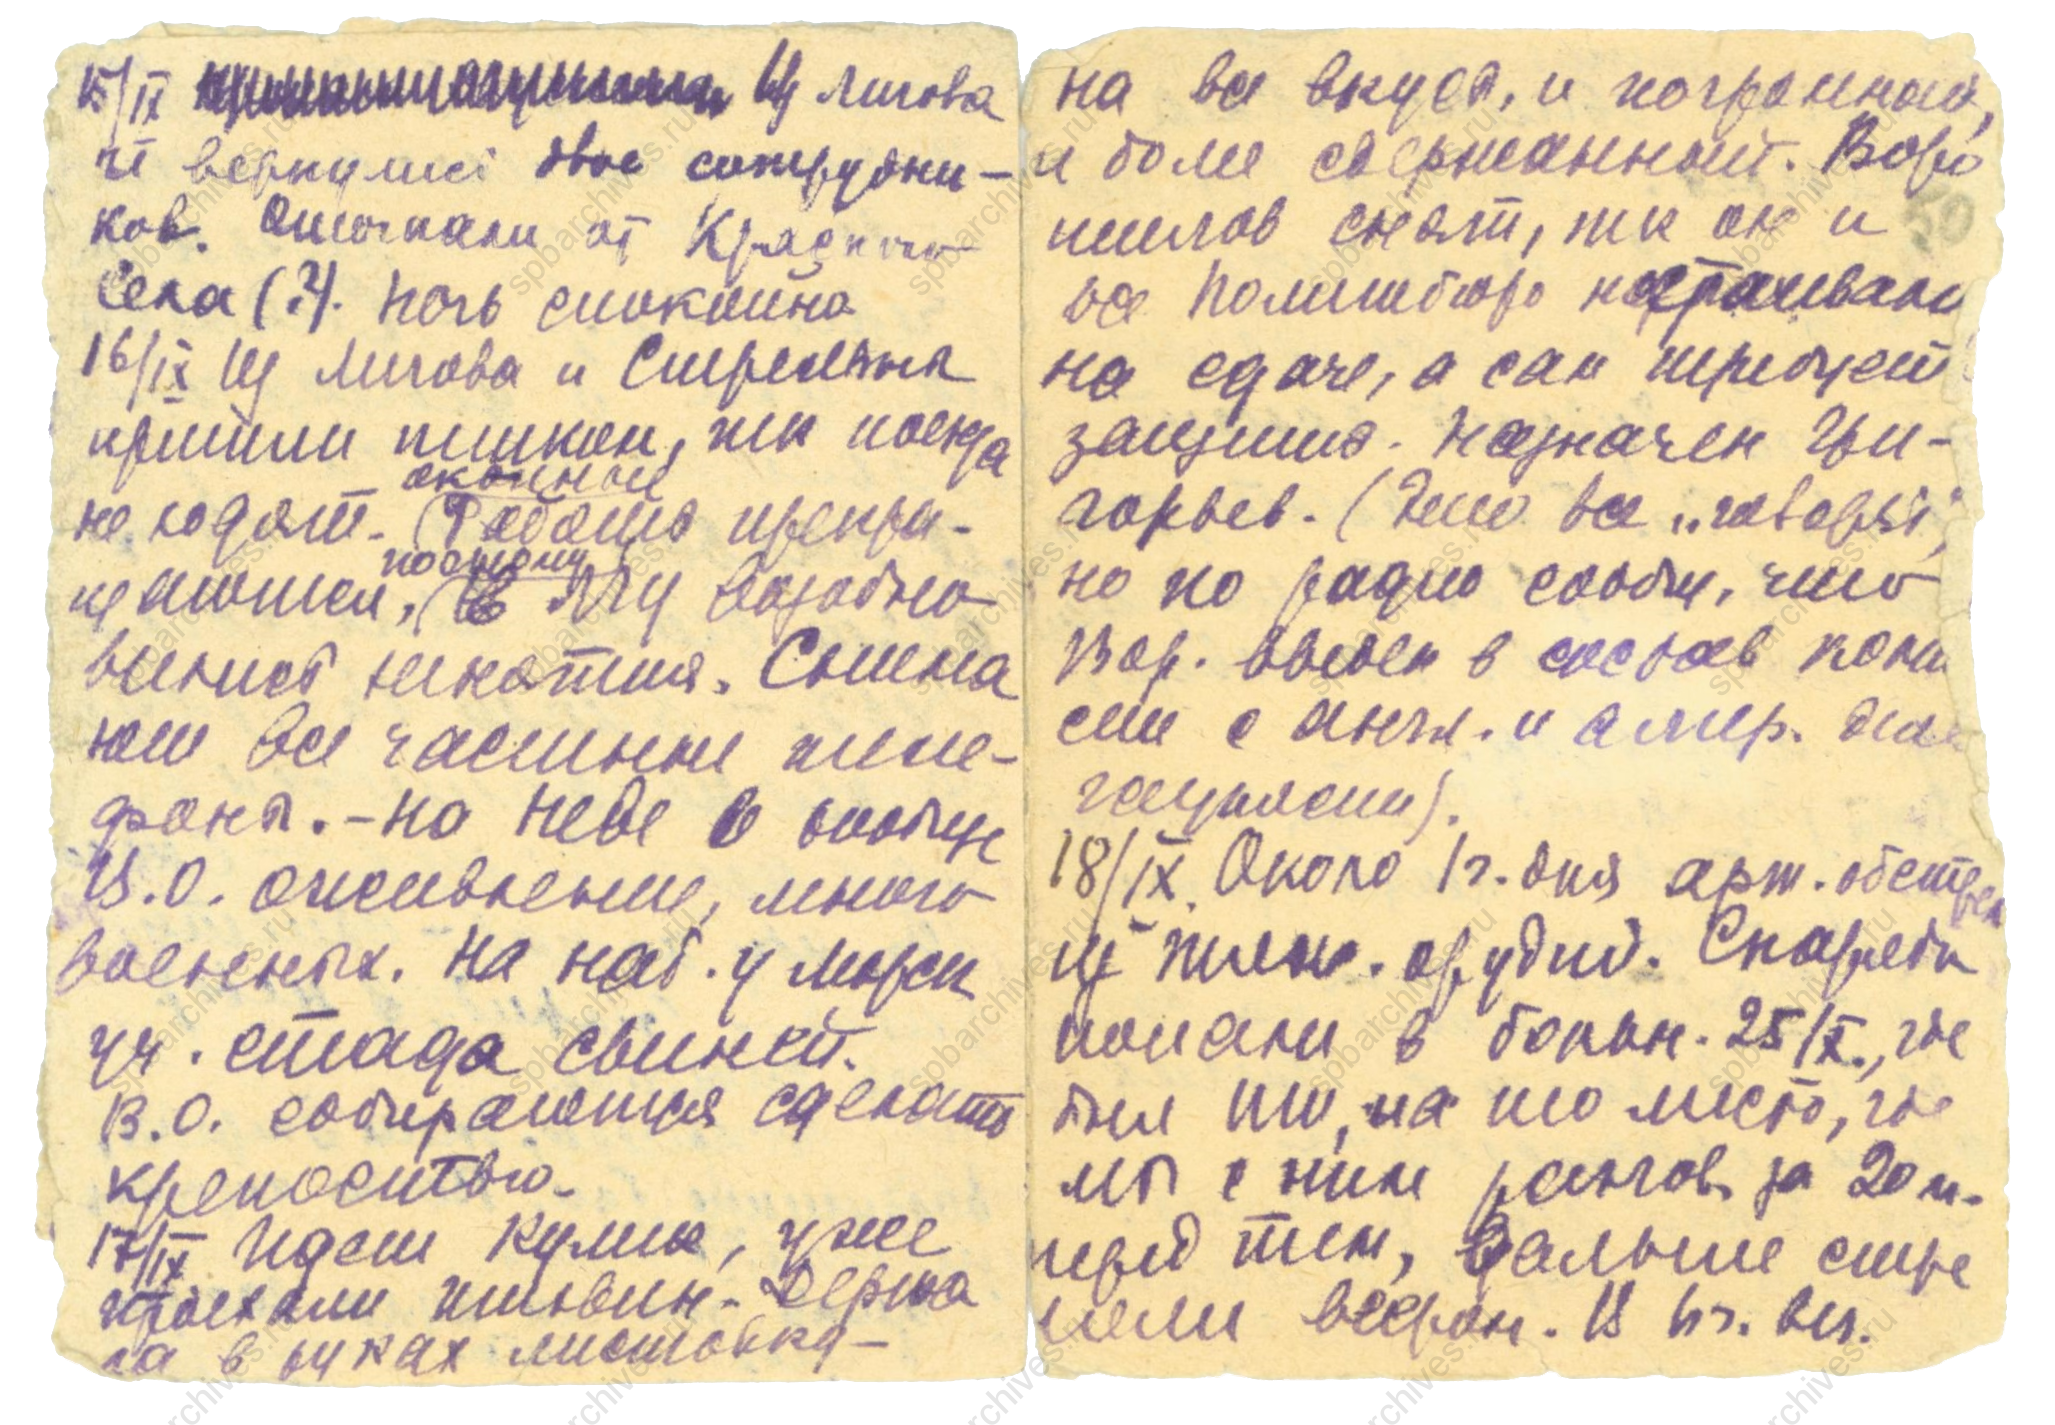 15/IX Из Лигова
не вернулись двое сотрудни-
ков. Отогнали от Красного
Села (?). Ночь спокойна
16/IX Из Лигова и Стрельны
пришли пешком, т.к. поезда
не ходят. Окопные
Работы прекра-
щаются, поэтому
в ЛГУ возобно
вились занятия. Снима
ют все частные теле-
фоны. - На Неве и вообще
В.О. оживление, много
военных. На наб. у Морск
уч. стада свиней.
В.О. собираются сделать
крепостью.
17/IX Идет Кулик, уже
проехали пешвин. Держа
ла в руках листовку -
на все вкусы, и погромный,
и более сдержанный. Воро
шилов снят, т.к. он и
все Политбюро настаивали
на сдаче, а сам требует
защиты. Назначен Гри-
горьев. (Это все "говорят",
но по радио сообщ., что
Вор. введен в состав коми
сии с англ. и амер. деле
гациями).
18/IX. Около 1 ч. дня арт. обстрел
из тяж. орудий. Снаряды
попали в больн. 25/X., где
был ПТИ, на то место, где
мы с ним разгов. за 20 м.
перед тем, дальше стре
ляли веером. В 4 ч. веч.